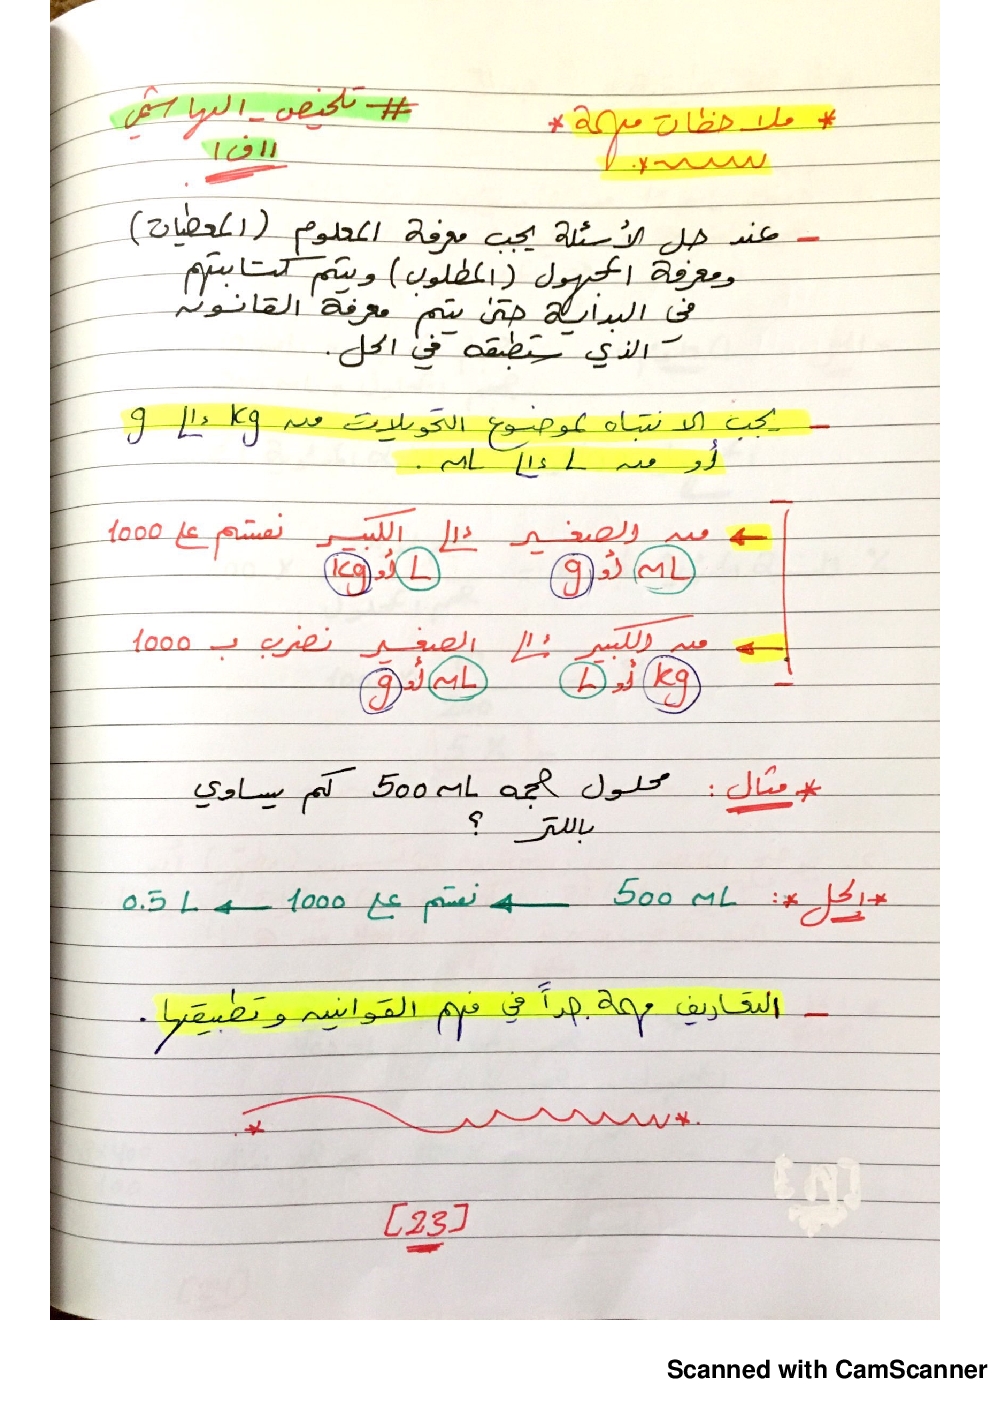 * ملاحظات مهمة *
# تلخيص_الهاشمي
١١ف١
– عند حل الأسئلة يجب معرفة المعلوم (المعطيات)
ومعرفة المجهول (المطلوب) ويتم كتابتهم
في البداية حتى يتم معرفة القانون
الذي ستطبقه في الحل.
– يجب الانتباه لموضوع التحويلات من kg إلى g
أو من L إلى mL .
← من الصغير إلى الكبير نقسم على 1000
mL أو g L أو kg
← من الكبير إلى الصغير نضرب بـ 1000
kg أو L mL أو g
* مثال : محلول حجمه 500 mL كم يساوي
باللتر ؟
* الحل * : 500 mL ← نقسم على 1000 ← 0.5 L
– التعاريف مهمة جداً في فهم القوانين وتطبيقها .
[23]
Scanned with CamScanner